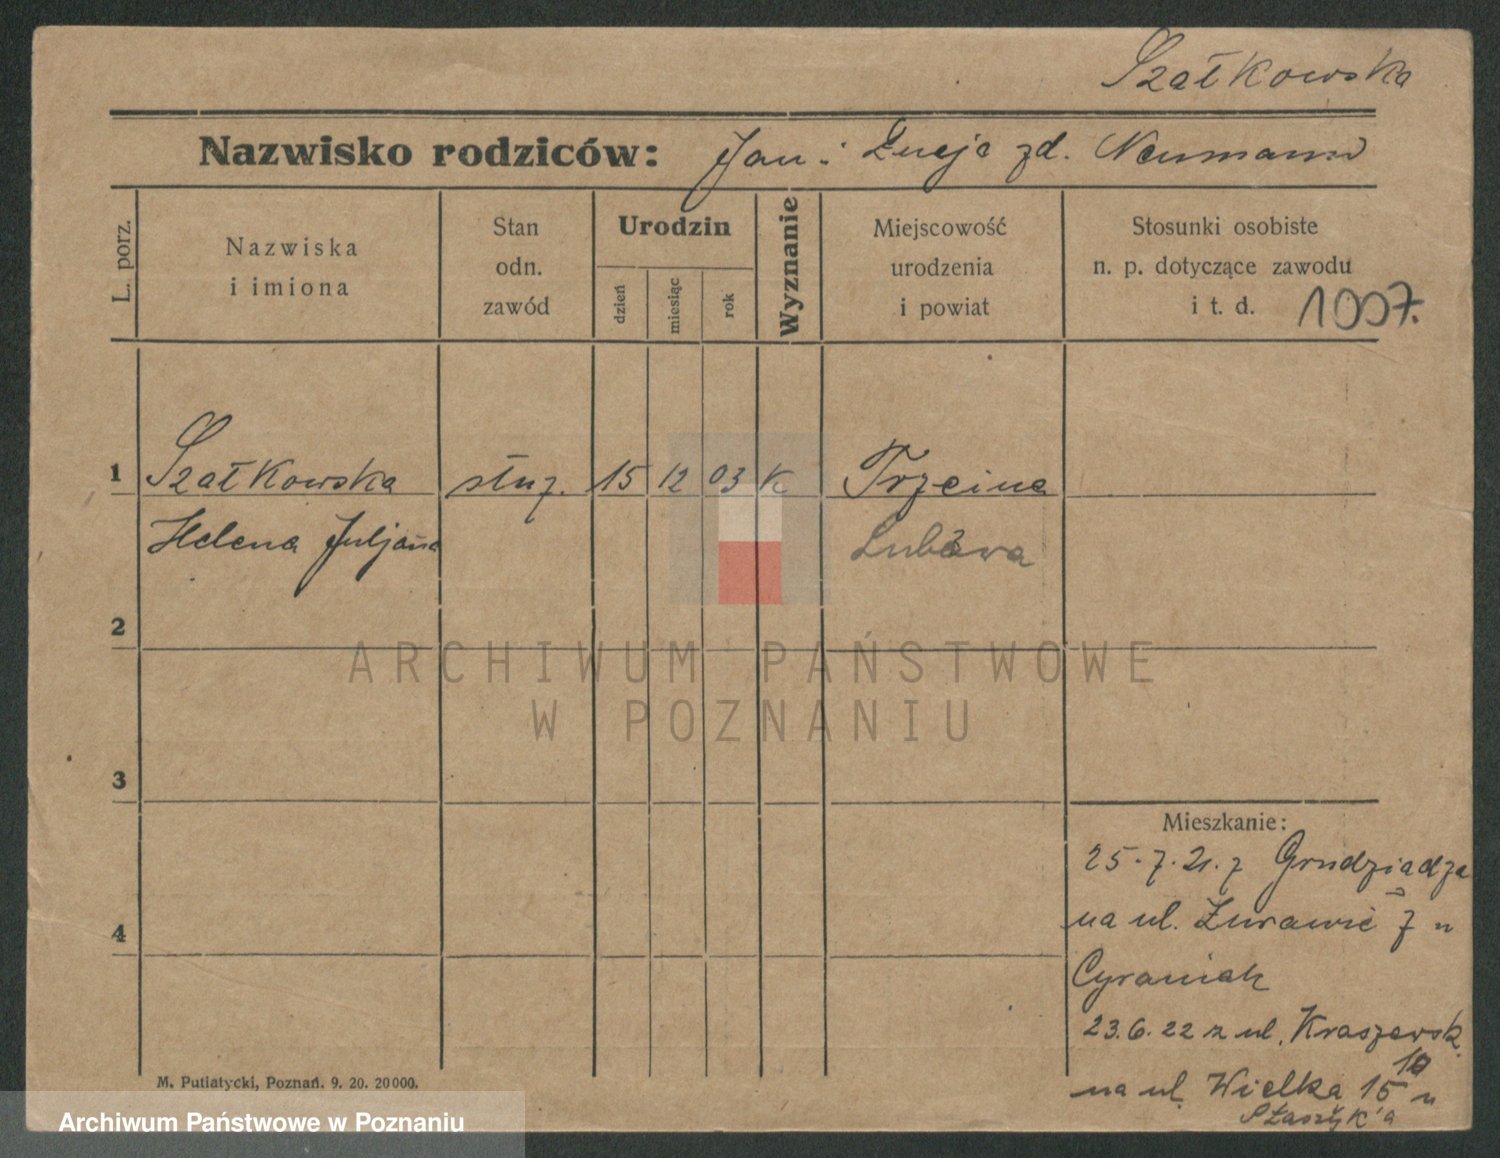 Szałkowska
Nazwisko rodziców: Jan i Łucja zd. Neumann
L. porz.
Nazwiska
i imiona
Stan
odn.
zawód
Urodzin
dzień
miesiąc
rok
Wyznanie
Miejscowość
urodzenia
i powiat
Stosunki osobiste
n. p. dotyczące zawodu
i t. d. 1007.
1 Szałkowska służ. 15 12 03 K Trzcina
Helena Juljana Lubawa
2
ARCHIWUM PAŃSTWOWE
W POZNANIU
3
Mieszkanie:
25.7.21. z Grudziądza
4
na ul. Żurawie 7 u
Cyraniak
23.6.22 z ul. Kraszewsk.
10
na ul. Wielka 15 u
M. Putiatycki, Poznań. 9. 20. 20000.
Archiwum Państwowe w Poznaniu